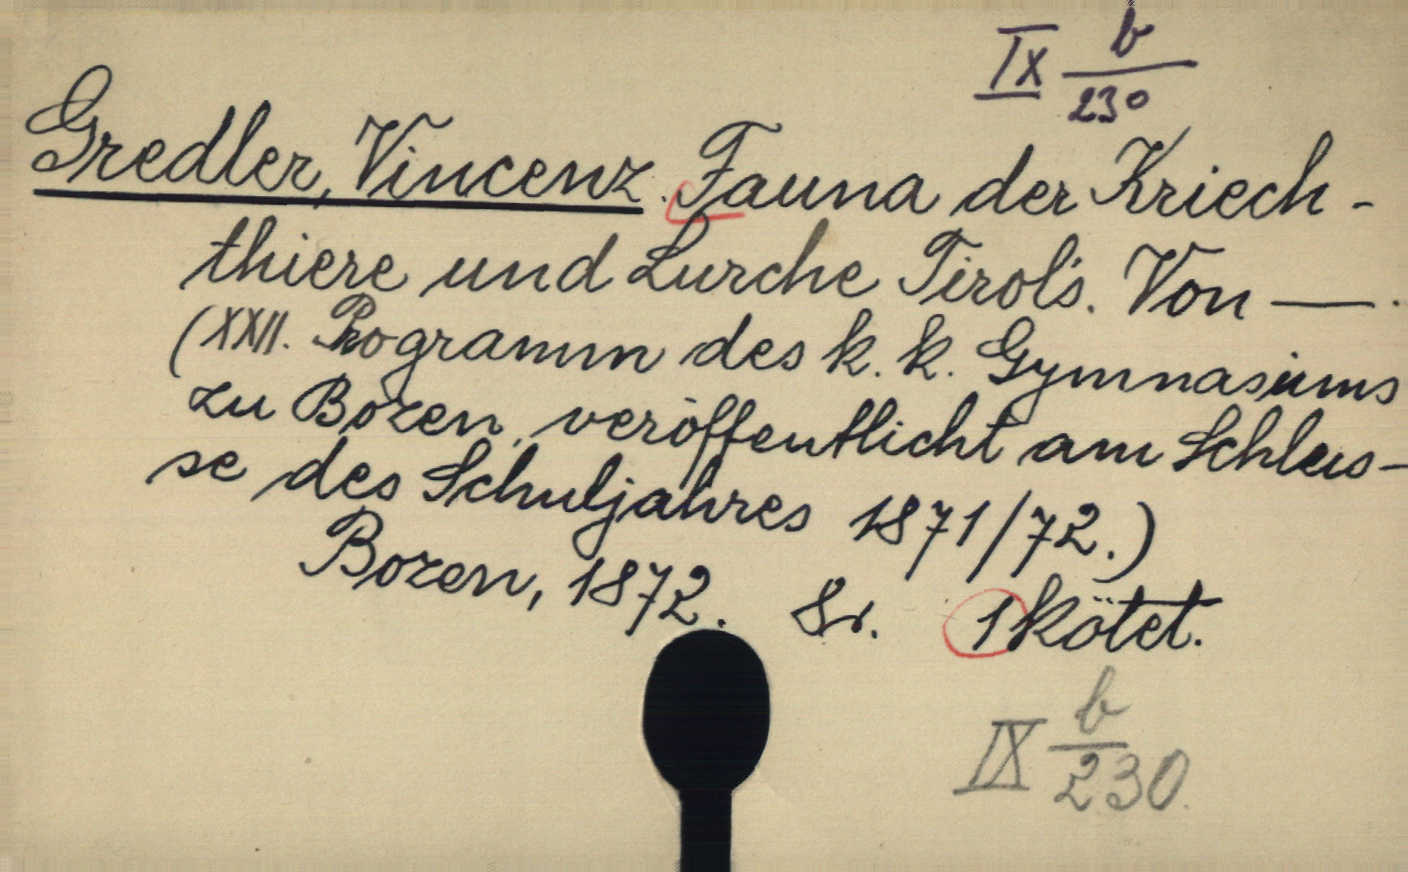 IX b/230
Gredler, Vincenz. Fauna der Kriech-
thiere und Lurche Tirol's. Von —.
(XXII. Programm des k. k. Gymnasiums
zu Bozen, veröffentlicht am Schlus-
se des Schuljahres 1871/72.)
Bozen, 1872. 8r. 1 kötet.
IX b/230.